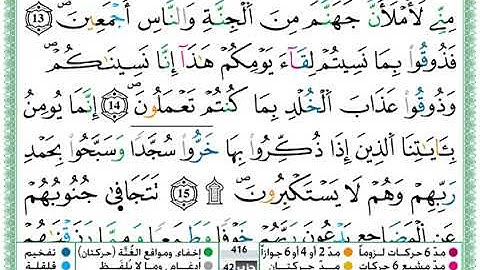 مِنِّي لَأَمْلَأَنَّ جَهَنَّمَ مِنَ ٱلْجِنَّةِ وَٱلنَّاسِ أَجْمَعِينَ ۝١٣
فَذُوقُوا۟ بِمَا نَسِيتُمْ لِقَآءَ يَوْمِكُمْ هَٰذَآ إِنَّا نَسِينَٰكُمْ ۖ
وَذُوقُوا۟ عَذَابَ ٱلْخُلْدِ بِمَا كُنتُمْ تَعْمَلُونَ ۝١٤ إِنَّمَا يُؤْمِنُ
بِـَٔايَٰتِنَا ٱلَّذِينَ إِذَا ذُكِّرُوا۟ بِهَا خَرُّوا۟ سُجَّدًا وَسَبَّحُوا۟ بِحَمْدِ
رَبِّهِمْ وَهُمْ لَا يَسْتَكْبِرُونَ ۩ ۝١٥ تَتَجَافَىٰ جُنُوبُهُمْ
عَنِ ٱلْمَضَاجِعِ يَدْعُونَ رَبَّهُمْ خَوْفًا وَطَمَعًا وَمِمَّا رَزَقْنَٰهُمْ
مدّ 6 حركات لزوماً مدّ 2 أو 4 أو 6 جوازاً 416 إخفاء، ومواقع الغُنَّة (حركتان) تفخيم
حركات مدّ حركتان 42 إدغام، وما لا يُلفَظ قلقلة